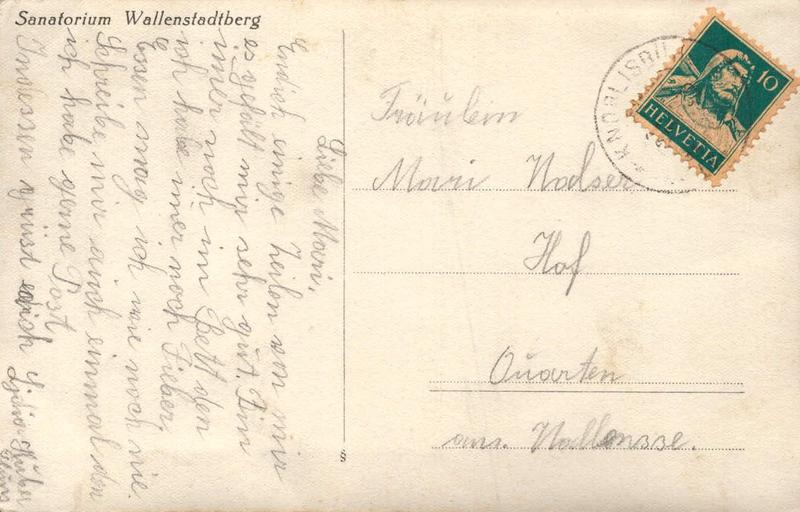 Sanatorium Wallenstadtberg
Liebe Mari,
Endlich einige Zeilen von mir
es gefält mir sehr gut. Bin
imer noch im Bett den
ich habe imer noch Fieber.
Essen mag ich wie noch nie.
Schreibe mir auch einmal den
ich habe gerne Post
Inzwessen grüst dich
HELVETIA
10
Fräulein
Mari
Hof
Quarten